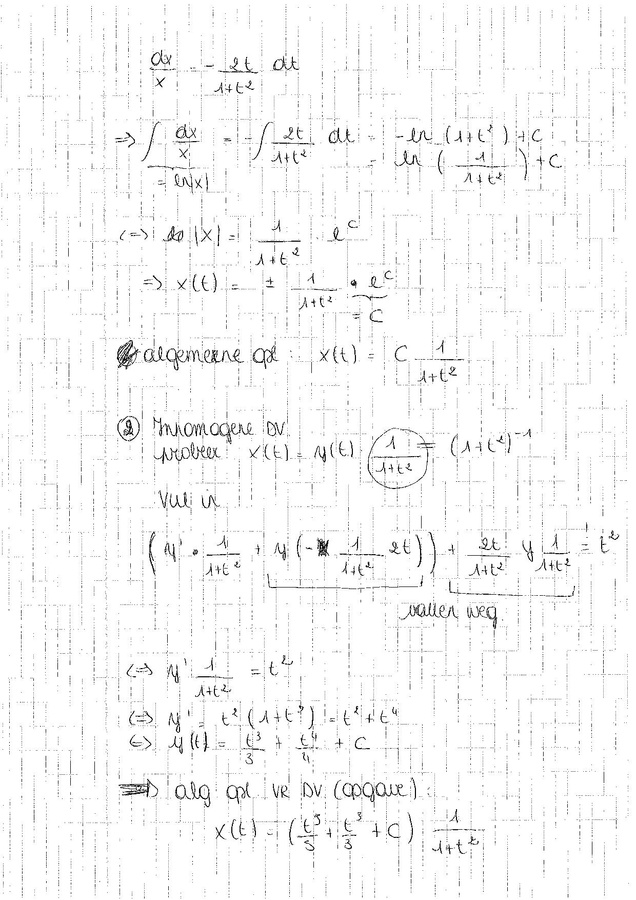 dx/x = - 2t/(1+t²) dt
=> ∫ dx/x = - ∫ 2t/(1+t²) dt = -ln (1+t²) + C
= ln|x| = ln ( 1/(1+t²) ) + C
<=> |x| = 1/(1+t²) · e^C
=> x(t) = ± 1/(1+t²) • e^C
= C
algemene opl : x(t) = C 1/(1+t²)
② Inhomogene DV
probeer x(t) = y(t) 1/(1+t²) = (1+t²)^-1
Vul in
( y' • 1/(1+t²) + y (- 1/(1+t²) 2t) ) + 2t/(1+t²) y 1/(1+t²) =! t²
vallen weg
<=> y' 1/(1+t²) = t²
<=> y' = t² (1+t²) = t² + t⁴
<=> y(t) = t³/3 + t⁴/4 + C
=> alg opl VR DV (opgave) :
x(t) = ( t⁵/5 + t³/3 + C ) 1/(1+t²)